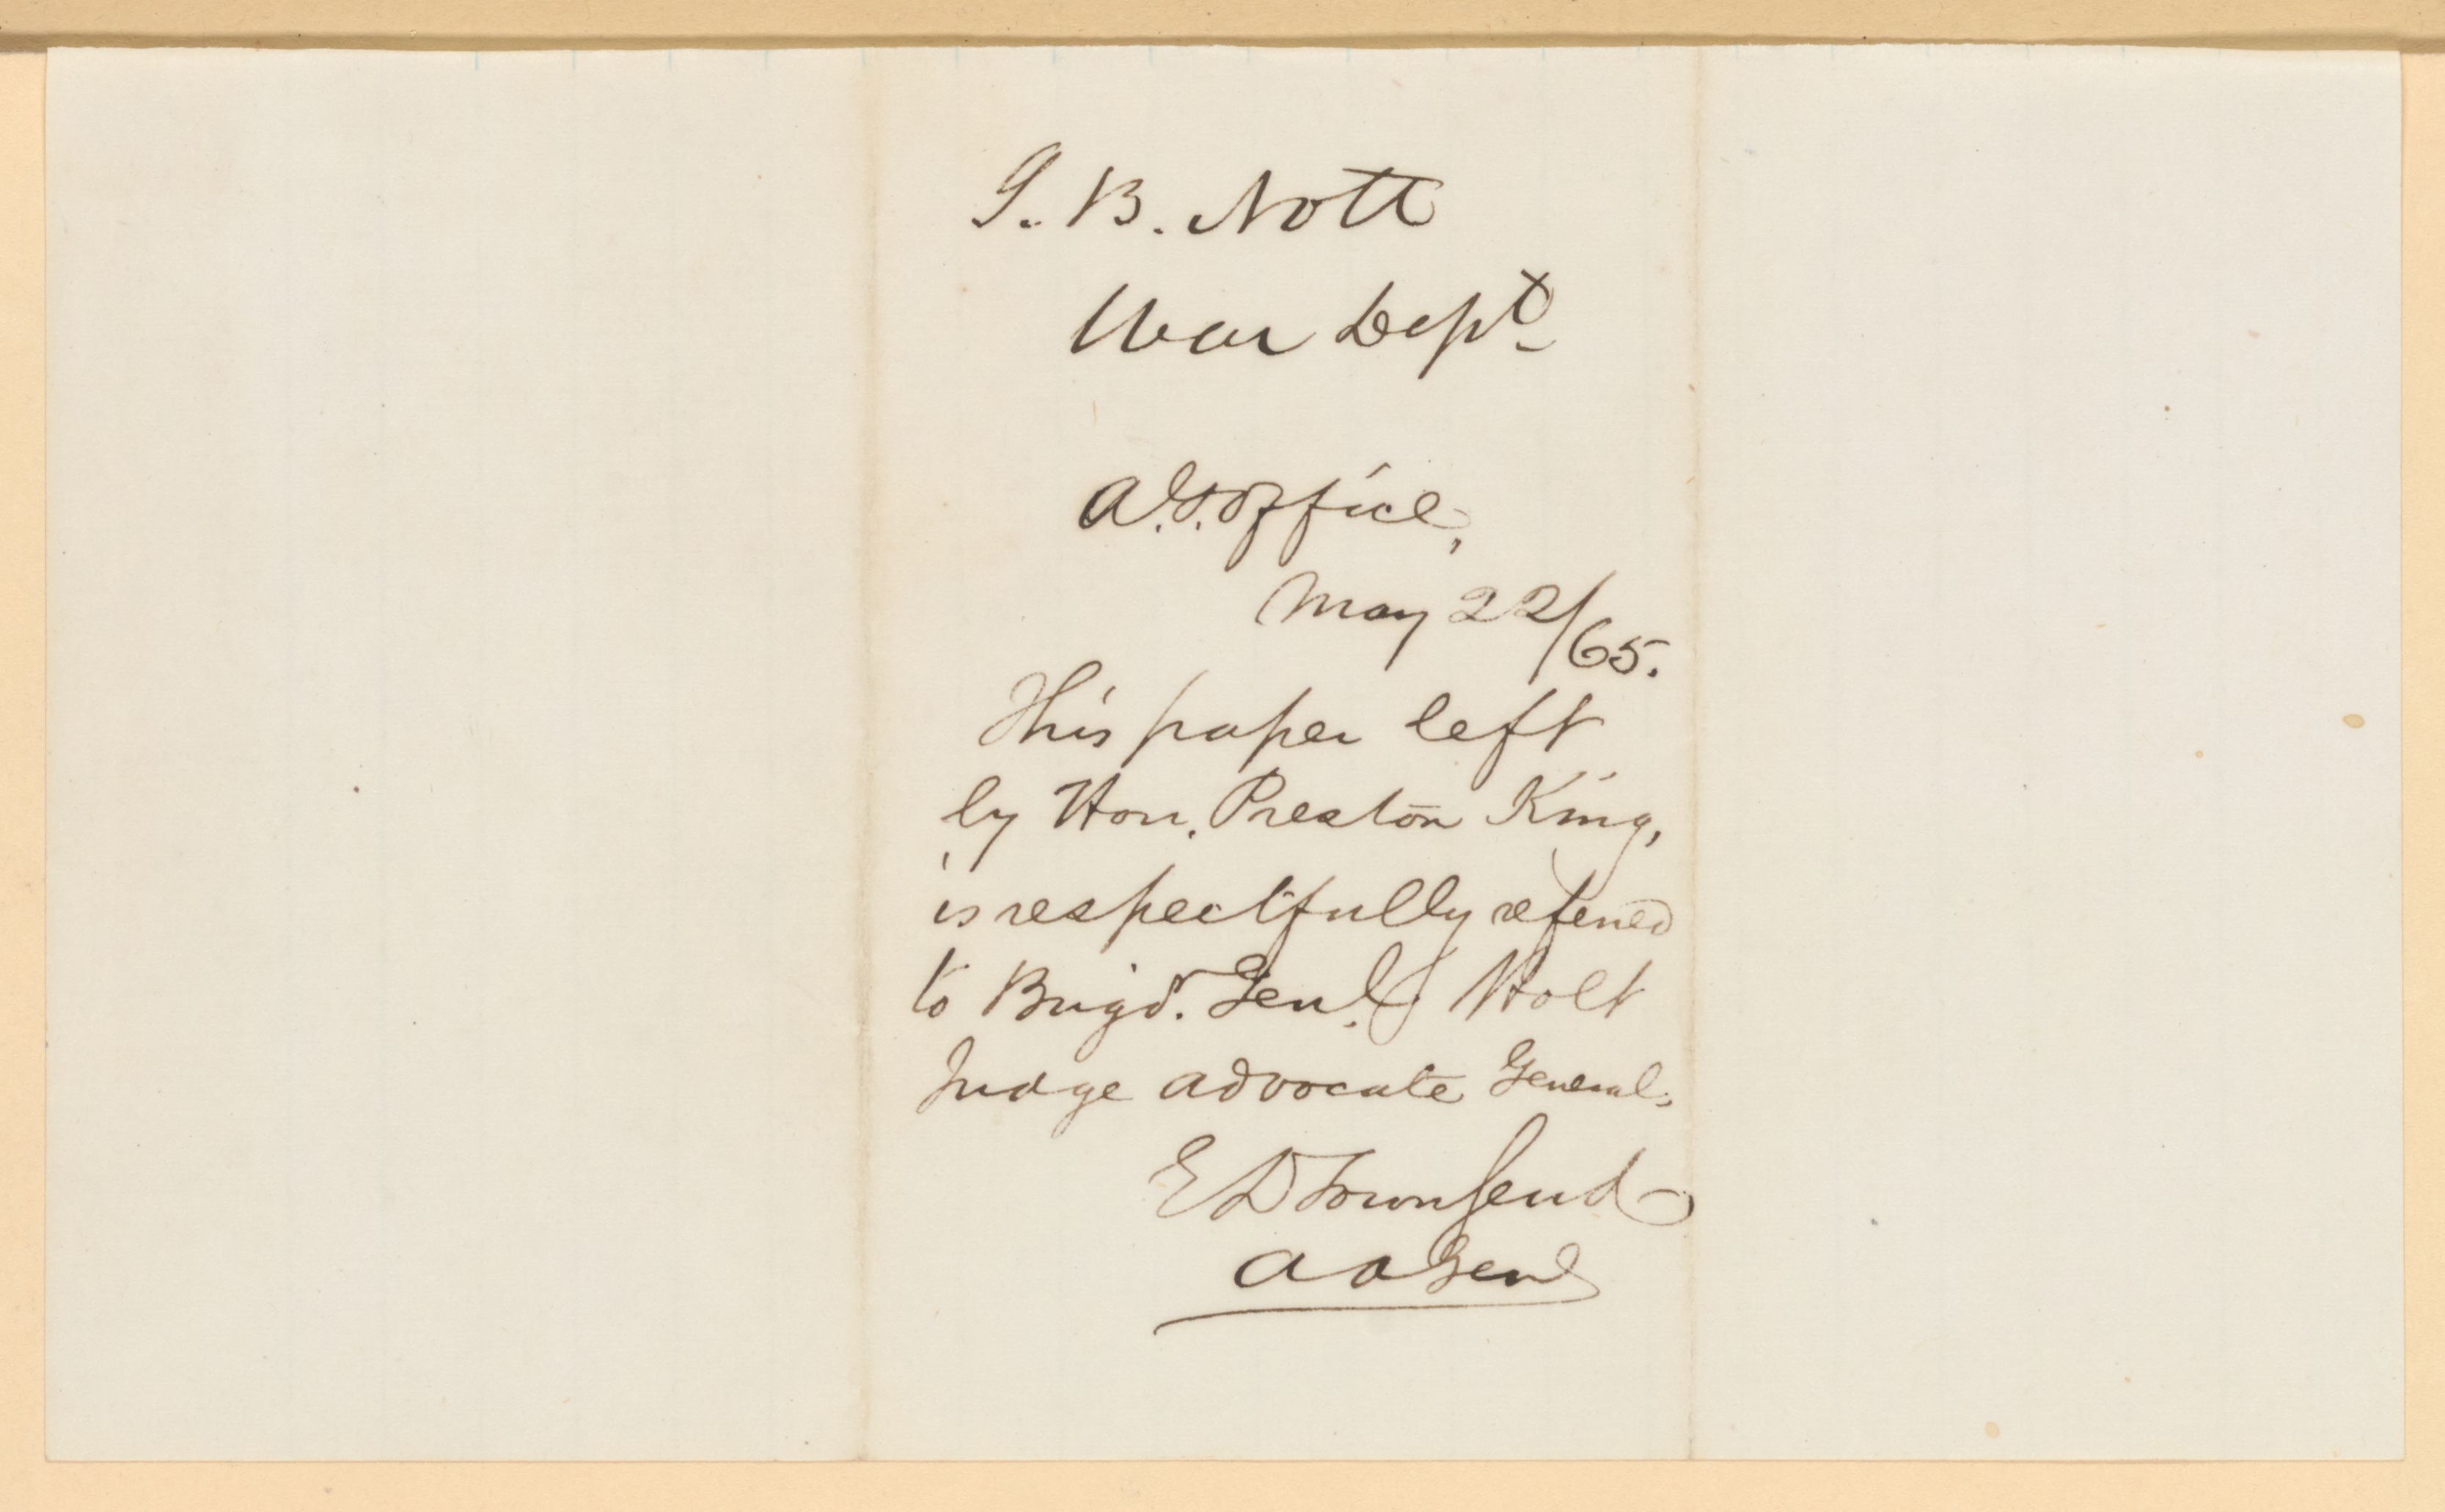 G. B. Nott
War Dept
A. G. Office,
May 22/65.
This paper left
by Hon. Preston King,
is respectfully referred
to Brigd. Genl. Holt
Judge Advocate General.
E D Townsend
A A Genl